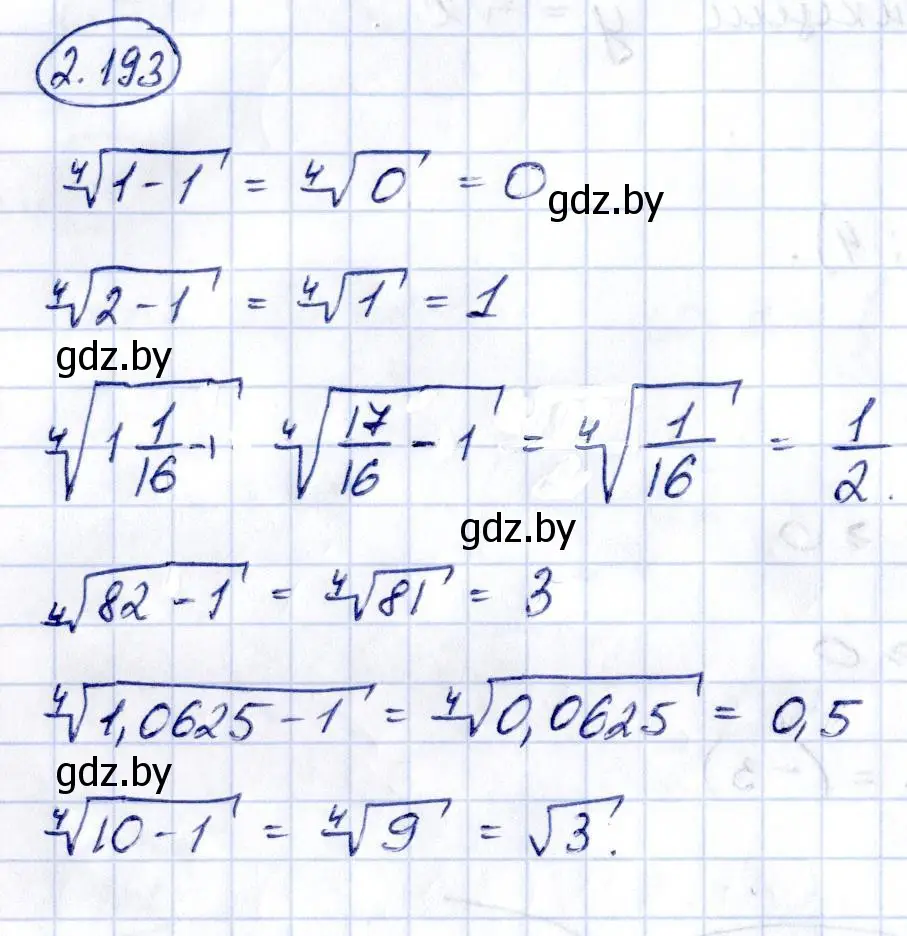 2.193
∜(1 - 1) = ∜0 = 0
gdz.by
∜(2 - 1) = ∜1 = 1
gdz.by
∜(1 1/16 - 1) ∜(17/16 - 1) = ∜(1/16) = 1/2.
gdz.by
∜(82 - 1) = ∜81 = 3
∜(1,0625 - 1) = ∜(0,0625) = 0,5
gdz.by
∜(10 - 1) = ∜9 = √3.